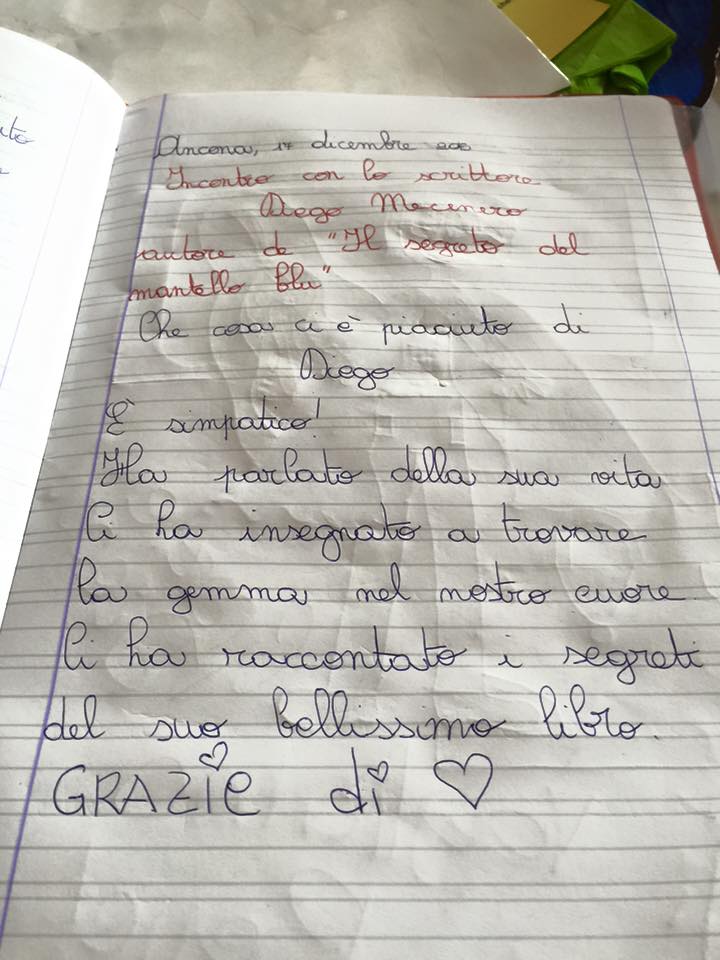 Ancona, 17 dicembre
Incontro con lo scrittore
Diego Mecenero
autore de "Il segreto del
mantello blu"
Che cosa ci è piaciuto di
Diego
È simpatico!
Ha parlato della sua vita
Ci ha insegnato a trovare
la gemma nel nostro cuore
Ci ha raccontato i segreti
del suo bellissimo libro.
GRAZIE di ♡